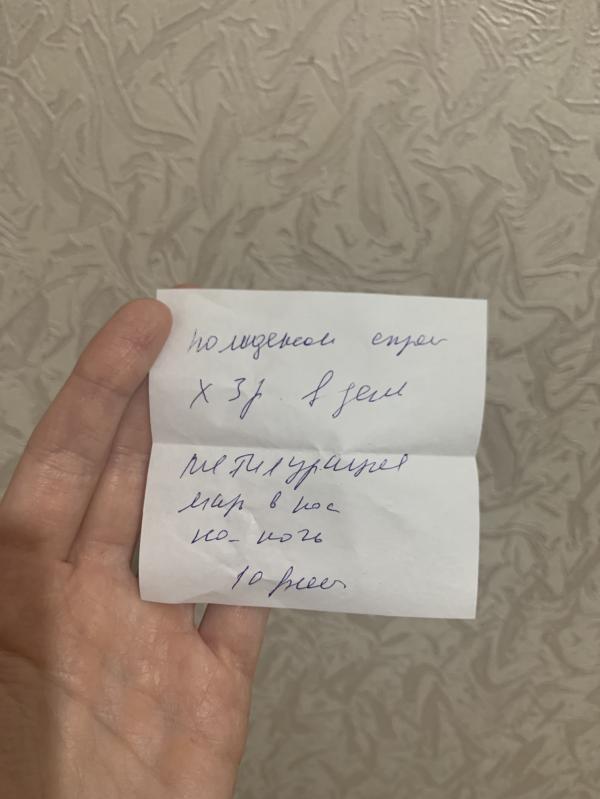 полидекса спрей
х 3р. в день
метилурацил
мар в нос
на ночь
10 дней